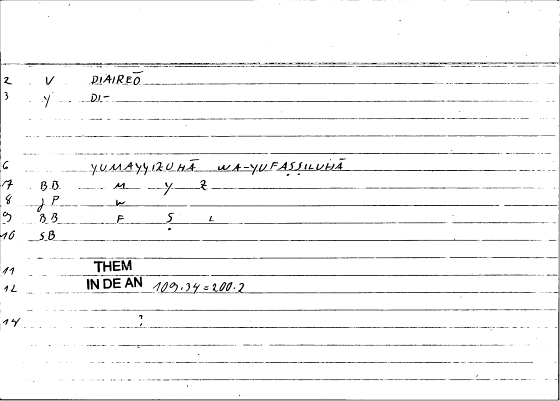 2 V DIAIREŌ
3 Y DI-
6 YUMAYYIZUHĀ WA-YUFAṢṢILUHĀ
7 BB M Y Z
8 JP W
9 BB F Ṣ L
10 SB
11 THEM
12 IN DE AN 109.34=200.2
14 ?